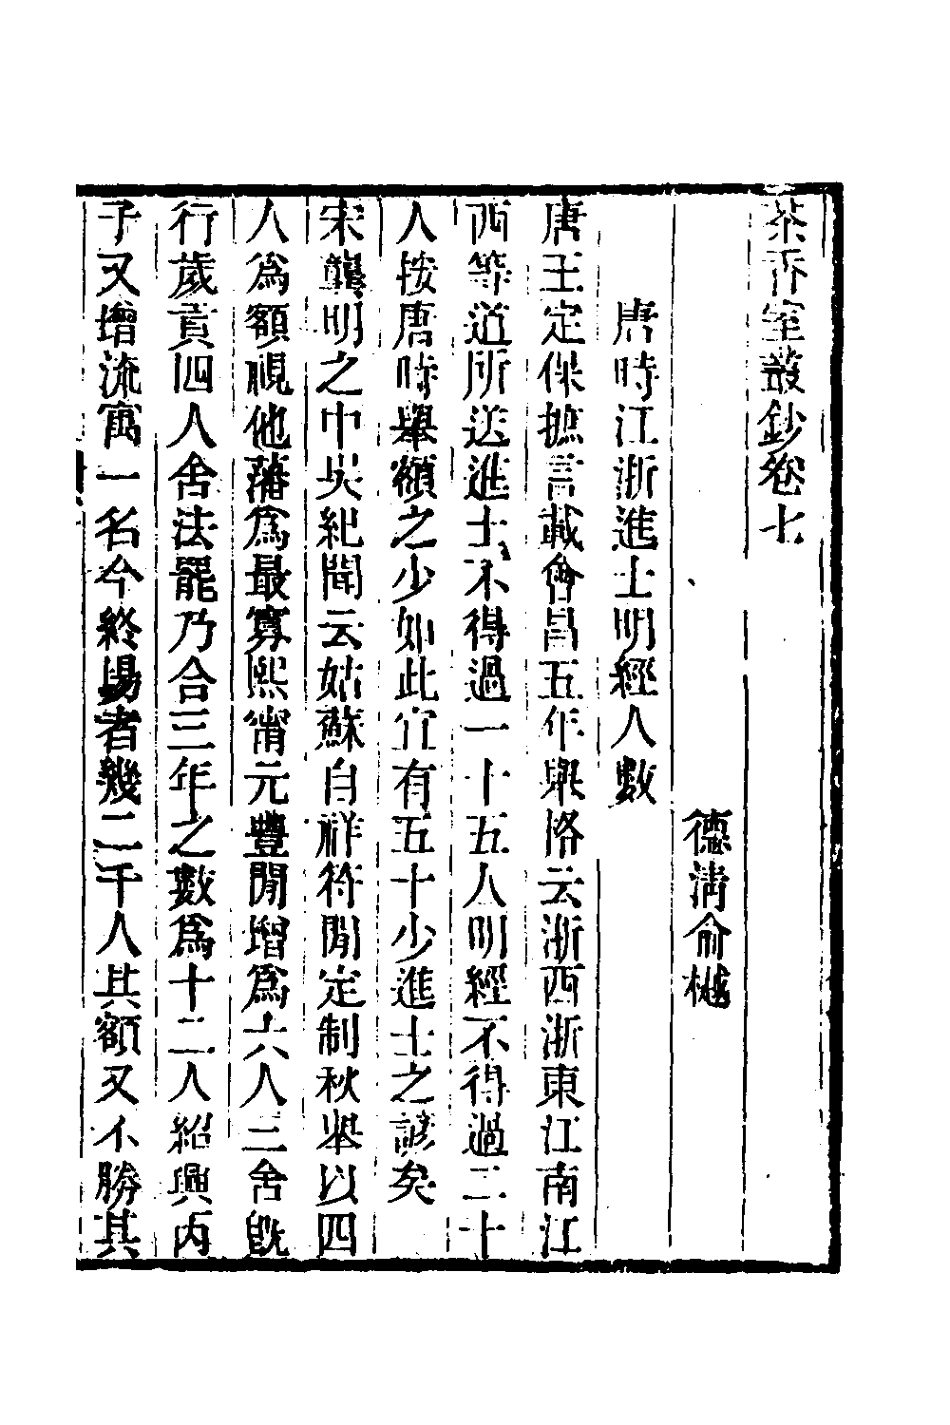 茶香室叢鈔卷七
德清俞樾
唐時江浙進士明經人數
唐王定保摭言載會昌五年舉格云浙西浙東江南江
西等道所送進士不得過一十五人明經不得過二十
人按唐時舉額之少如此宜有五十少進士之諺矣
宋龔明之中吳紀聞云姑蘇自祥符閒定制秋舉以四
人爲額視他藩爲最寡熙甯元豐閒增爲六人三舍旣
行歲貢四人舍法罷乃合三年之數爲十二人紹興丙
子又增流寓一名今終場者幾二千人其額又不勝其